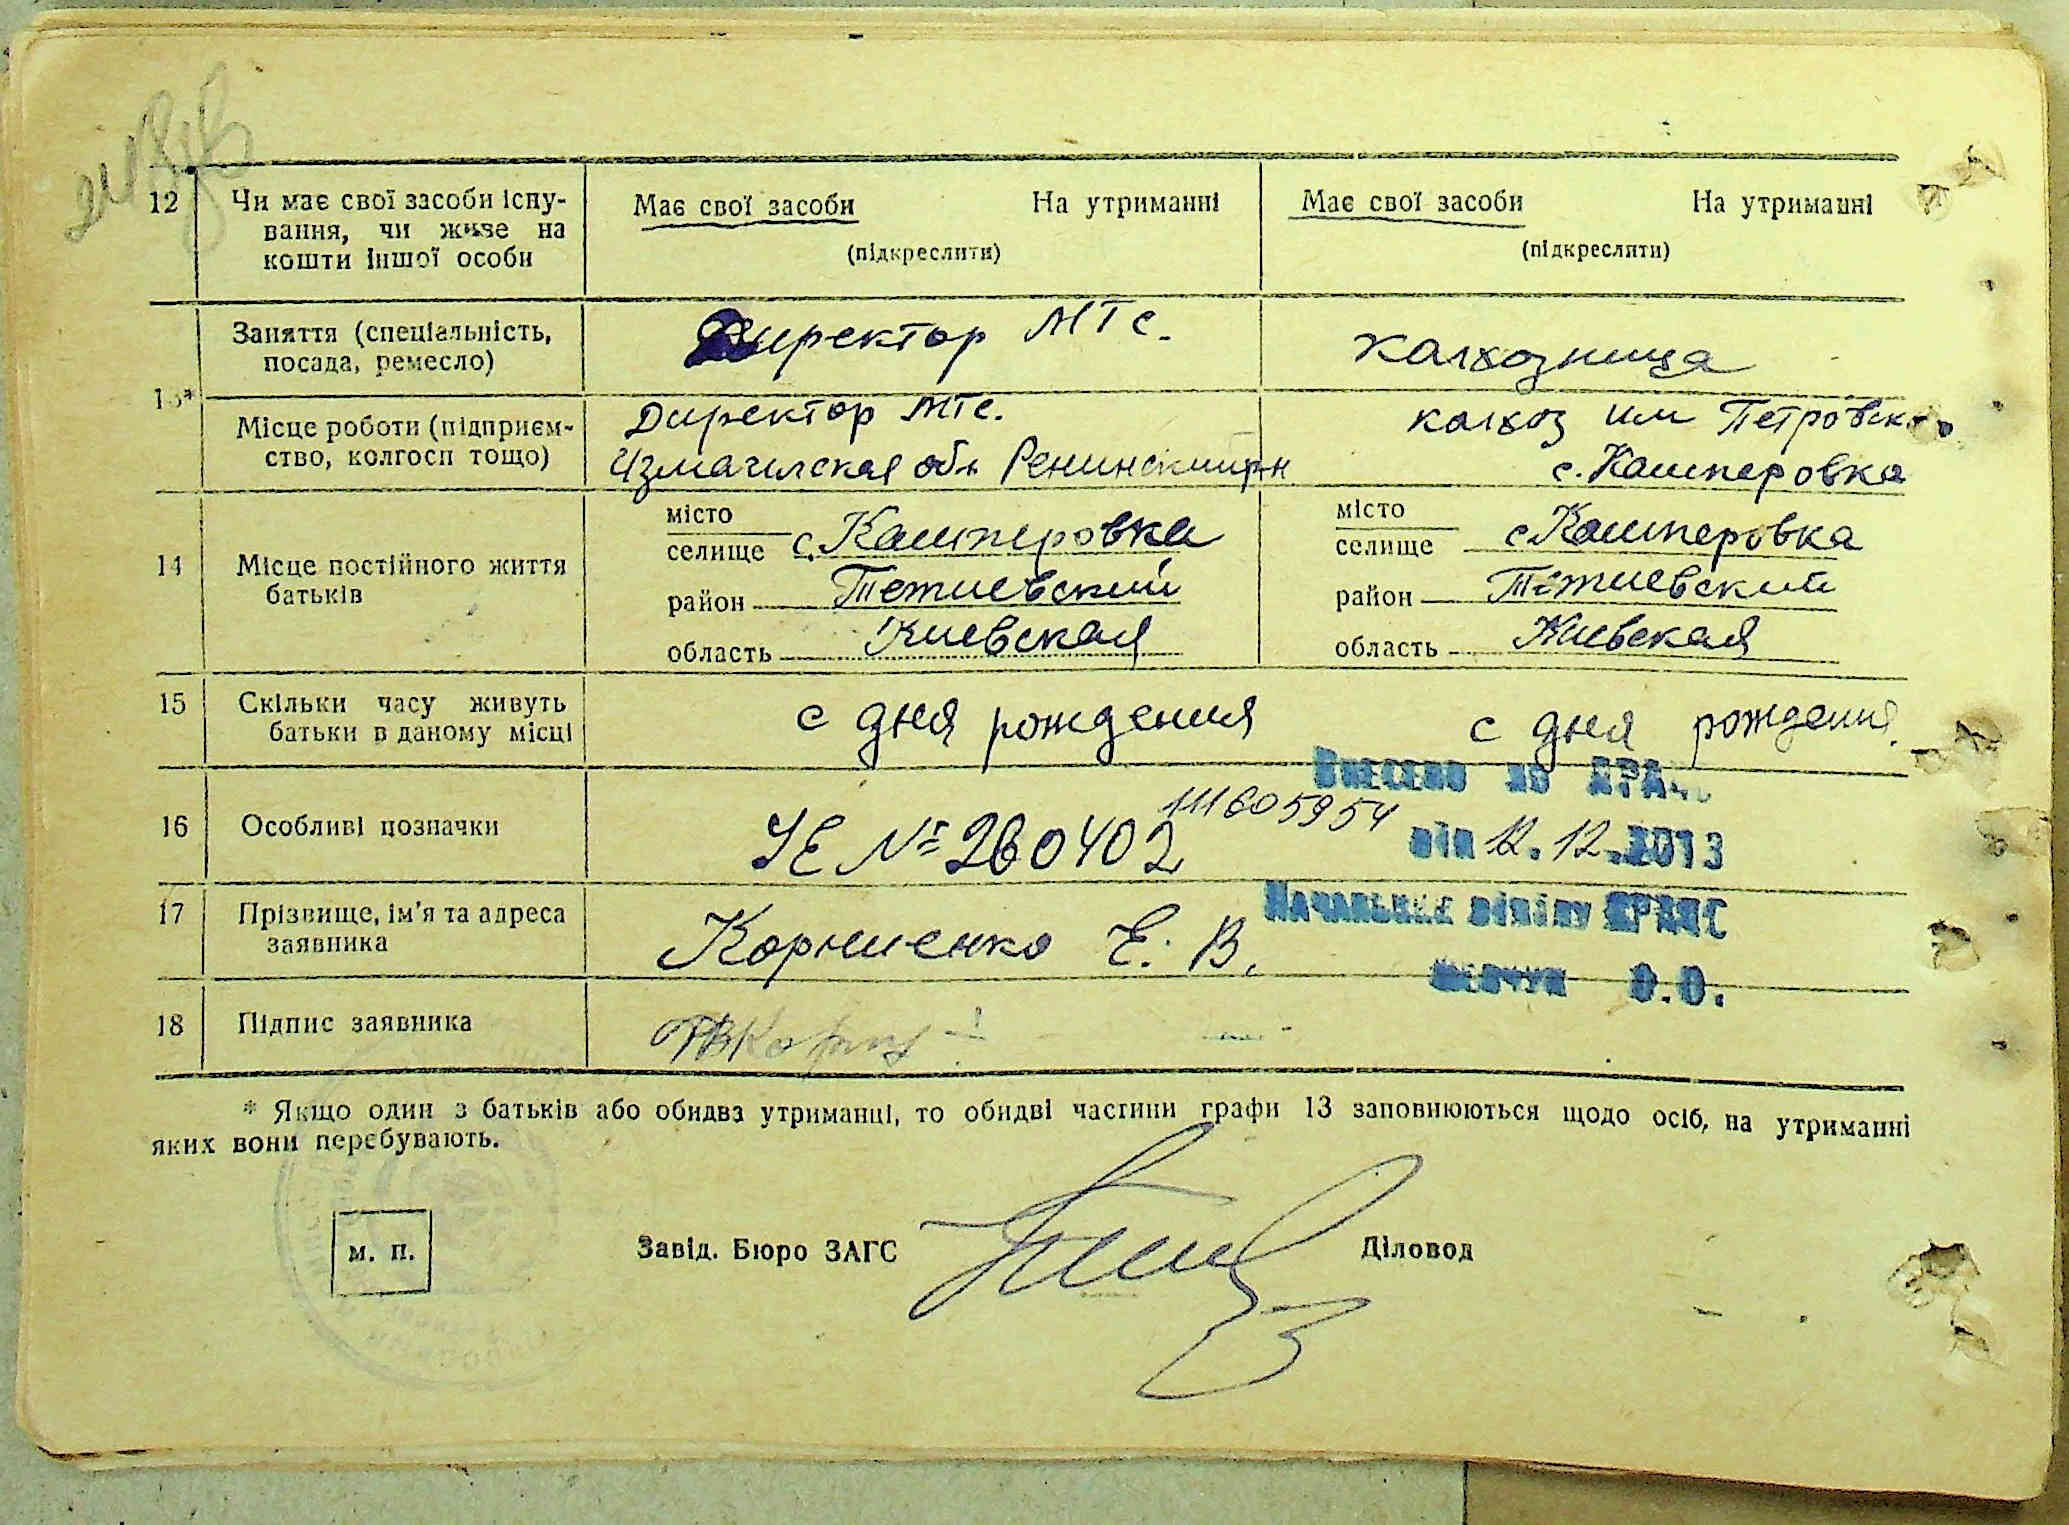 12 Чи має свої засоби існу-
вання, чи живе на
кошти іншої особи
Має свої засоби На утриманні
(підкреслити)
Має свої засоби На утриманні
(підкреслити)
13*
Заняття (спеціальність,
посада, ремесло)
Директор МТС.
Колхозница
Місце роботи (підприєм-
ство, колгосп тощо)
Директор МТС.
Измаилская обл Ренинский рн
колхоз им Петровского
с. Кашперовка
14 Місце постійного життя
батьків
місто
селище с. Кашперовка
район Тетиевский
область Киевская
місто
селище с Кашперовка
район Тетиевский
область Киевская
15 Скільки часу живуть
батьки в даному місці
с дня рождения
с дня рождения.
Внесено до ДРАЦС
16 Особливі позначки
УЕ № 260402
111605954
від 12.12.2013
Начальник відділу ДРАЦС
17 Прізвище, ім'я та адреса
заявника
Корниенко Е. В.
Шевчук О.О.
18 Підпис заявника
* Якщо один з батьків або обидва утриманці, то обидві частини графи 13 заповнюються щодо осіб, на утриманні
яких вони перебувають.
м. п.
Завід. Бюро ЗАГС
Діловод